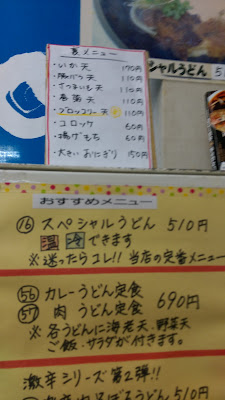 裏メニュー
・いか天 170円
・豚バラ天 110円
・さつまいも天 110円
・春菊天 110円
・ブロッコリー天 110円
・コロッケ 60円
・揚げもち 60円
・大きいおにぎり 150円
シャルうどん 5
おすすめメニュー
⑯ スペシャルうどん 510円
温 冷 できます
※迷ったらコレ!! 当店の定番メニュー
56 カレーうどん定食 690円
57 肉うどん定食
※各うどんに海老天・野菜天
ご飯・サラダが付きます。
激辛シリーズ第2弾!!
うどん 510円